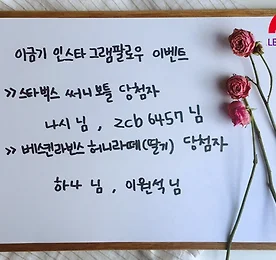 이금기 인스타그램팔로우 이벤트
>> 스타벅스 써니보틀 당첨자
나시 님, zcb 6457 님
>> 베스킨라빈스 허니라떼(딸기) 당첨자
하나 님, 이원석 님
LE